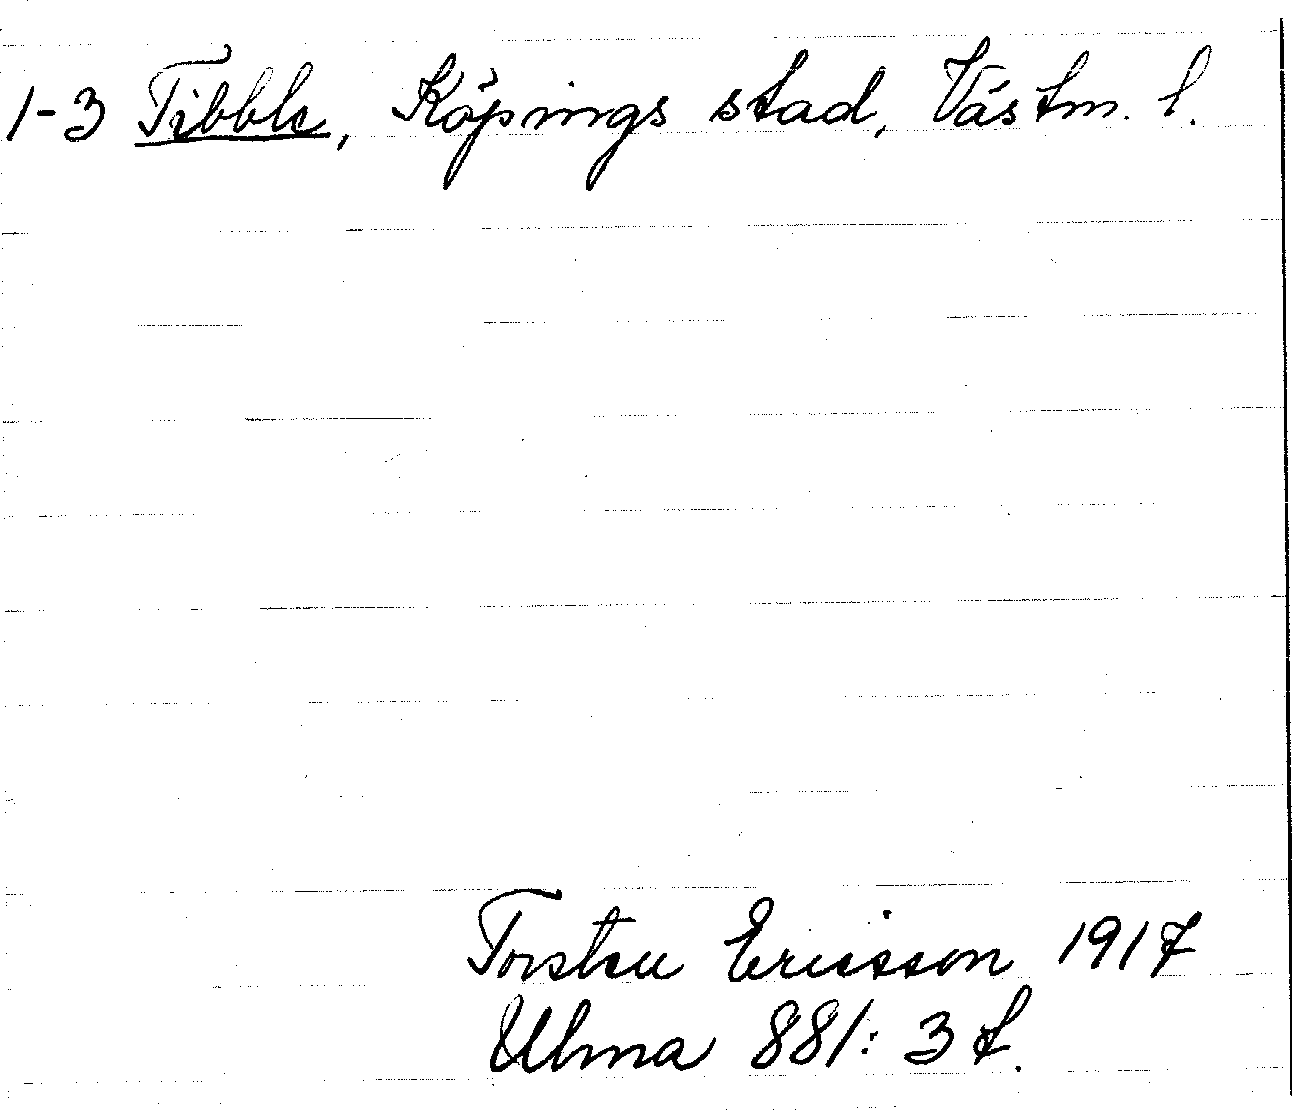 1-3 Tibble, Köpings stad, Västm. l.
Torsten Ericsson 1917
Ulma 881: 3 f.